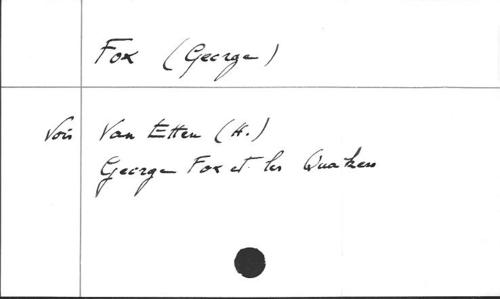 Fox (George)
Voir Van Etten (H.)
George Fox et les Quakers